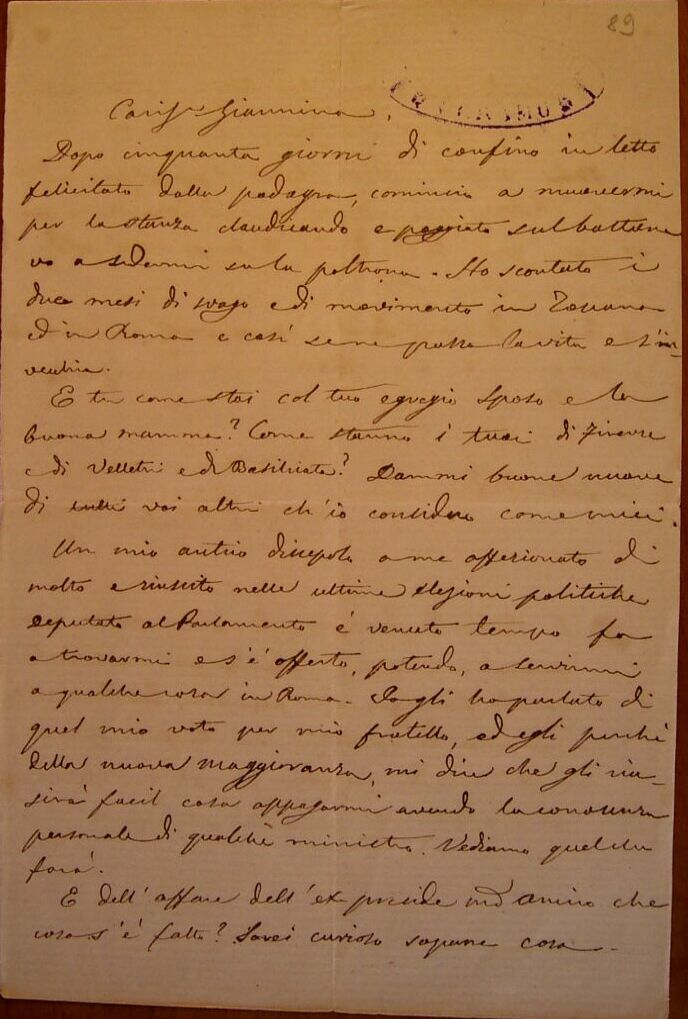 89
Cariss. Giannina,
Dopo cinquanta giorni di confino in letto
felicitato dalla podagra, comincio a muovermi
per la stanza claudicando e poggiato sul bastone
vo a sedermi su la poltrona. Ho scontato i
due mesi di svago e di movimento in Toscana
ed in Roma e così se ne passa la vita e s'in-
vecchia.
E tu come stai col tuo egregio sposo e la
buona mamma? Come stanno i tuoi di Firenze
e di Velletri e di Basilicata? Dammi buone nuove
di tutti voi altri ch'io considero come miei.
Un mio antico discepolo a me affezionato di
molto e riuscito nelle ultime elezioni politiche
deputato al Parlamento è venuto tempo fa
a trovarmi e s'è offerto, potendo, a servirmi
a qualche cosa in Roma. Io gli ho parlato di
quel mio voto per mio fratello, ed egli perchè
della nuova maggioranza, mi dice che gli riu-
scirà facil cosa appagarmi avendo la conoscenza
personale di qualche ministro. Vediamo quel che
farà.
E dell'affare dell'ex preside amino che
cosa s'è fatto? Sarei curioso saperne cosa.